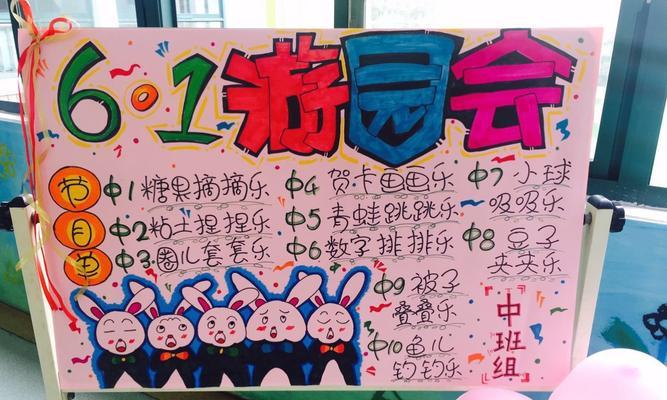 6·1游园会
节目单
中1糖果摘摘乐
中2粘土捏捏乐
中3圈儿套套乐
中4贺卡画画乐
中5青蛙跳跳乐
中6数字排排乐
中7小球
吸吸乐
中8豆子
夹夹乐
中9被子
叠叠乐
中10鱼儿
钓钓乐
中班组